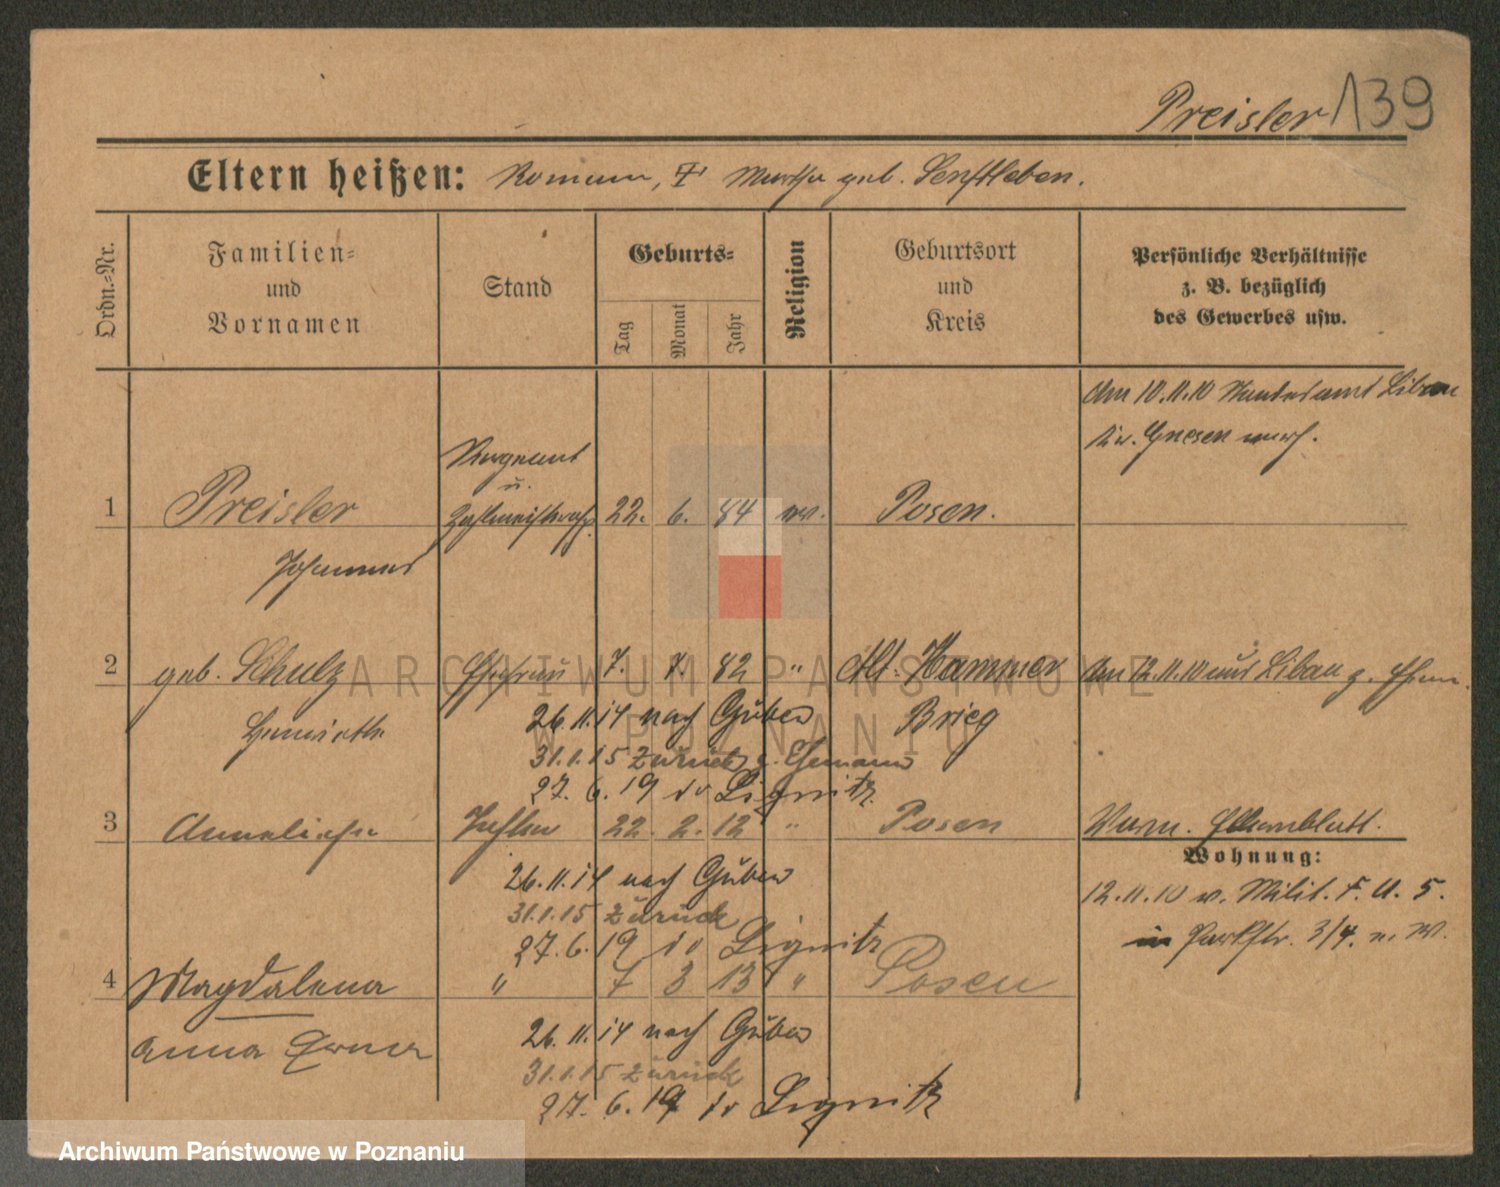 Preisler 139
Eltern heißen: Roman, Martha geb. Senftleben.
Ordn.-Nr.
Familien-
und
Vornamen
Stand
Geburts-
Tag
Monat
Jahr
Religion
Geburtsort
und
Kreis
Persönliche Verhältnisse
z. B. bezüglich
des Gewerbes usw.
Am 10.11.10 Standesamt Libau
Kr. Gnesen
1 Preisler
Johannes
Sergeant
u.
22. 6. 84
Posen.
2 geb. Schulz
Ehefrau 7. 7. 82 " Alt-Hammer
Brieg
Am 12.11.10 aus Libau z. Ehem.
26.11.14 nach Guben
31.1.15 zurück z. Ehemann
27.6.19 Liegnitz
3 Anneliese Tochter 22. 2. 12 " Posen
26.11.14 nach Guben
31.1.15 zurück
27.6.19 Liegnitz
Elternblatt.
Wohnung:
12.11.10 v. Milit. F. A. 5.
in Parkstr. 3/4.
4 Magdalena
Anna Erna
" 7 3 13 " Posen
26.11.14 nach Guben
31.1.15 zurück
27.6.19 Liegnitz
ARCHIWUM PAŃSTWOWE
W POZNANIU
Archiwum Państwowe w Poznaniu